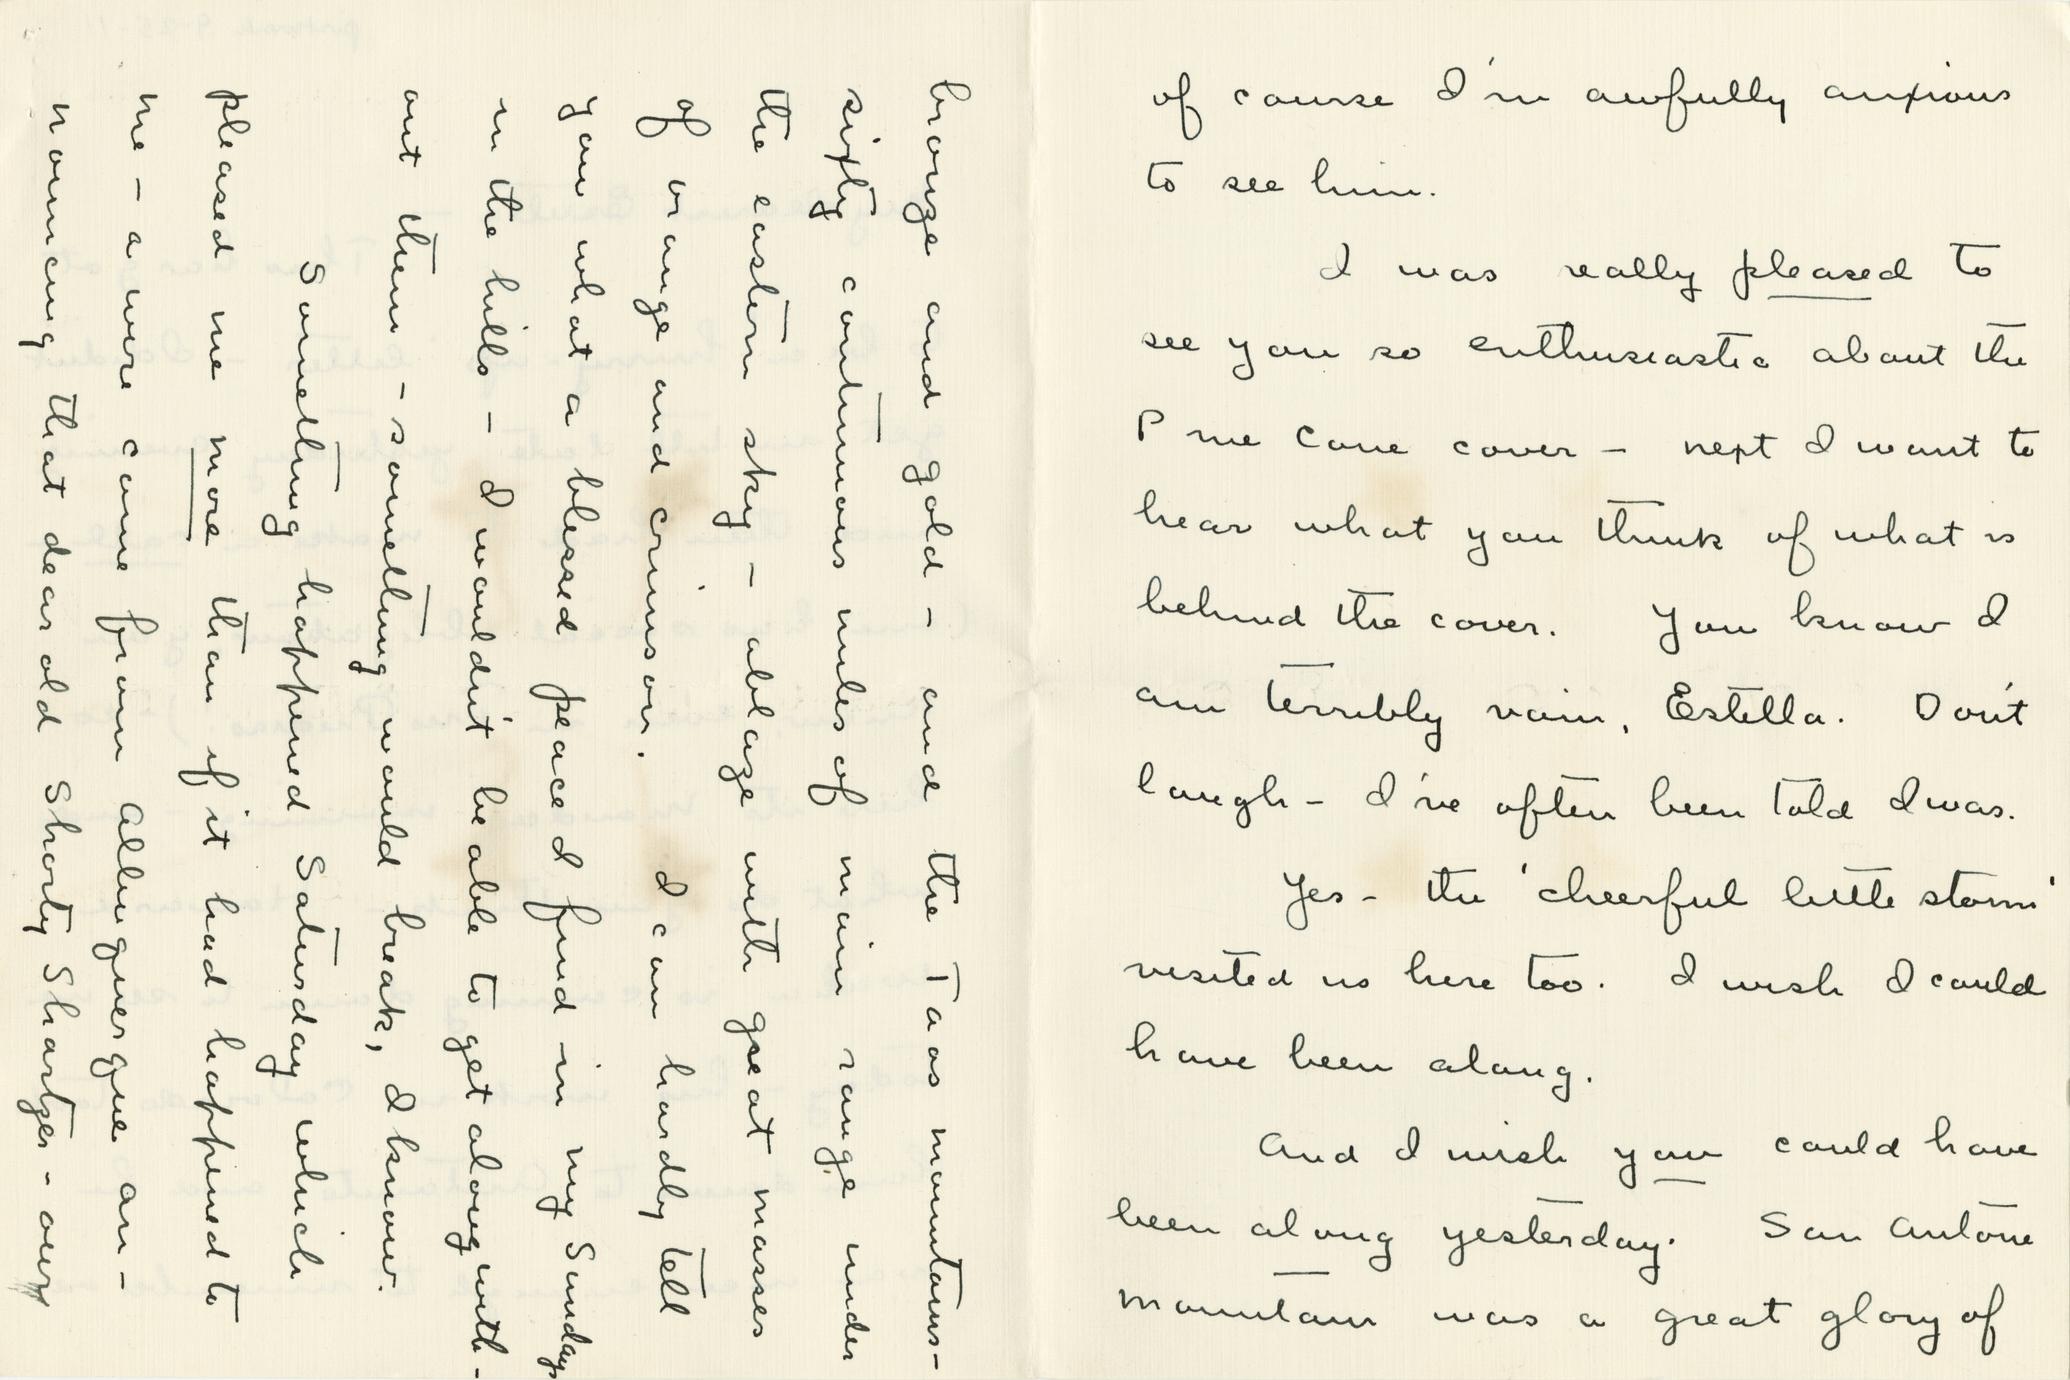 of course I'm awfully anxious
to see him.
I was really pleased to
see you so enthusiastic about the
P me Cone cover – next I want to
hear what you think of what is
behind the cover. You know I
am terribly vain, Estella. Don't
laugh – I've often been told I was.
Yes – the 'cheerful little storm'
visited us here too. I wish I could
have been along.
And I wish you could have
been along yesterday. San Antone
mountain was a great glory of
bronze and gold – and the Taos mountains –
sixty continuous miles of main range under
the eastern sky – ablaze with great masses
of orange and crimson. I can hardly tell
you what a blessed peace I find in my Sundays
in the hills – I wouldn't be able to get along with-
out them – something would break, I know.
Something happened Saturday which
pleased me more than if it had happened to
me – a wire came from Albuquerque an-
nouncing that dear old Shorty Shartzer – our